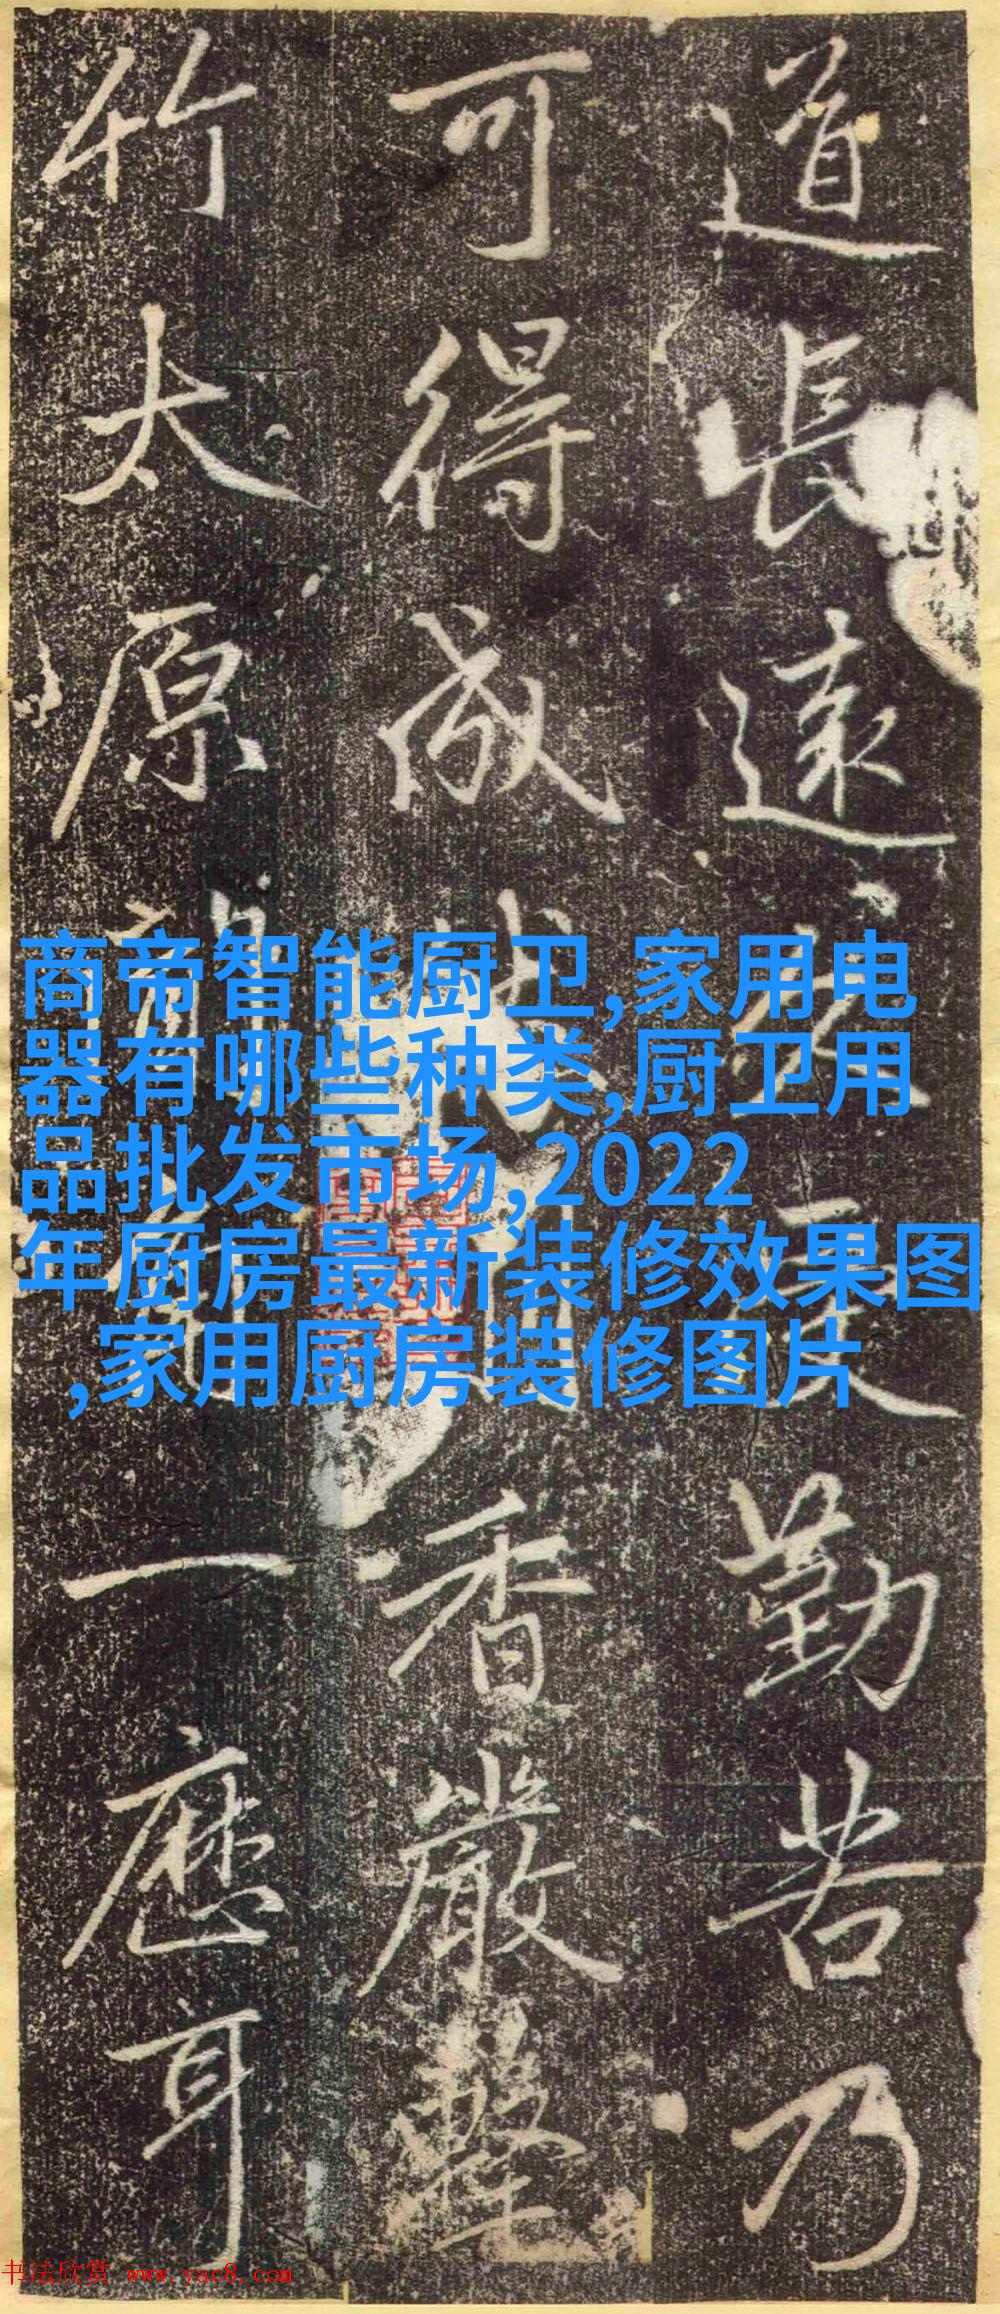 道長遠受勤苦乃
可得成香嚴擊
竹太原一應耳
商帝智能厨卫,家用电
器有哪些种类,厨卫用
品批发市场,2022
年厨房最新装修效果图
,家用厨房装修图片
书法欣赏 www.yac8.com